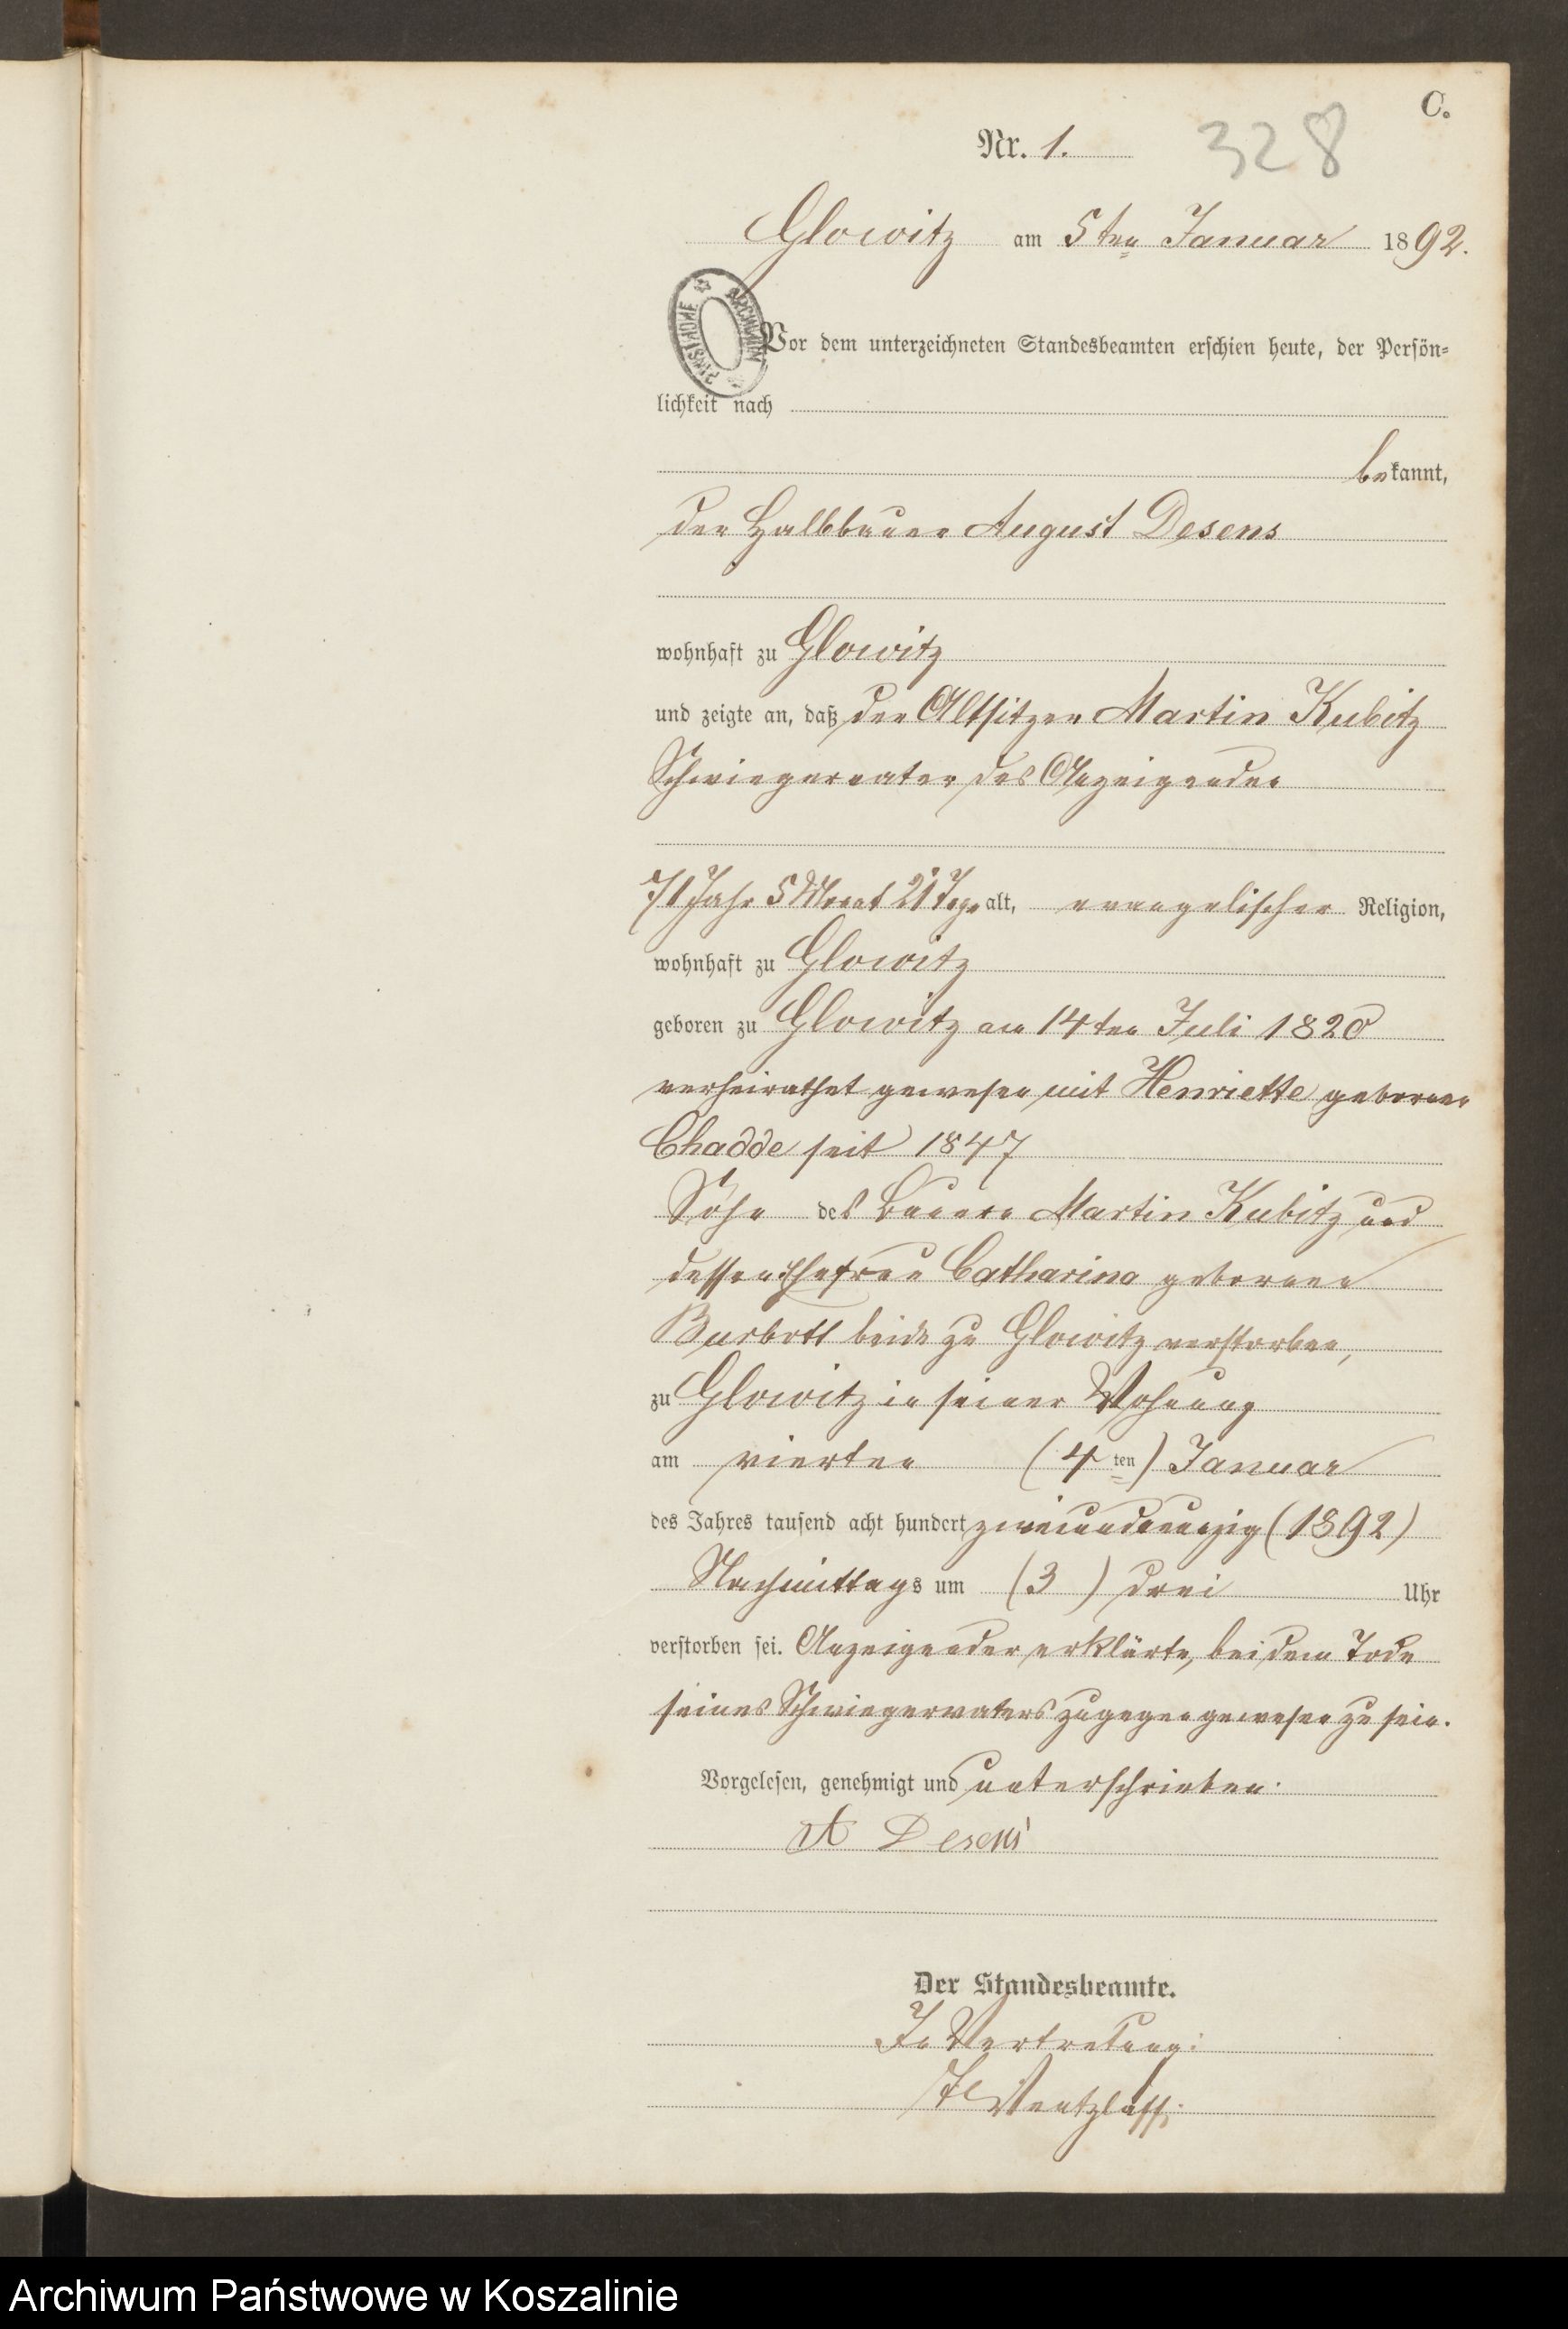 C.
Nr. 1. 328
Glowitz am 5ten Januar 1892.
ARCHIWUM PAŃSTWOWE
Vor dem unterzeichneten Standesbeamten erschien heute, der Persön-
lichkeit nach
bekannt,
der Halbbauer August Desens
wohnhaft zu Glowitz
und zeigte an, daß der Altsitzer Martin Kubitz
Schwiegervater des Anzeigenden
71 Jahr 5 Monat 21 Tage alt, evangelischer Religion,
wohnhaft zu Glowitz
geboren zu Glowitz am 14ten Juli 1820
verheirathet gewesen mit Henriette geborenen
Chadde seit 1847
Sohn des Bauern Martin Kubitz und
dessen Ehefrau Catharina geborenen
beide zu Glowitz verstorben,
zu Glowitz in seiner Wohnung
am vierten (4 ten) Januar
des Jahres tausend acht hundert zweiundneunzig (1892)
Nachmittags um (3) drei Uhr
verstorben sei. Anzeigender erklärte, bei dem Tode
seines Schwiegervaters zugegen gewesen zu sein.
Vorgelesen, genehmigt und unterschrieben.
A Desens
Der Standesbeamte.
In Vertretung:
Wentzlaff.
Archiwum Państwowe w Koszalinie